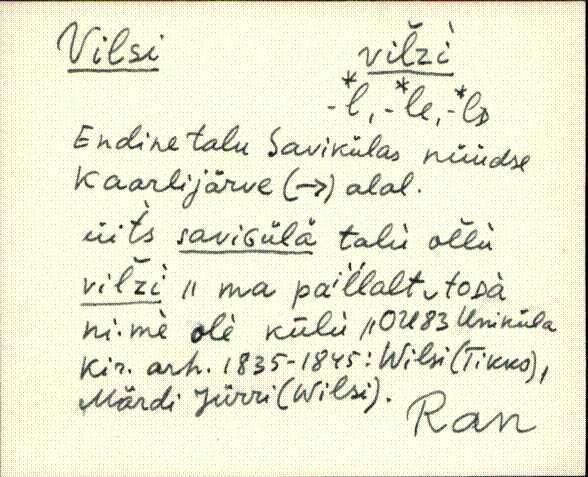 Vilsi vil̆zì
-*l, -*le, -*ls
Endine talu Savikülas nüüdse
Kaarlijärve (→) alal.
üit̀s saviGülä talù ol̆lù
vil̆zì „ ma pail̆lalt tooDà
ni·mè olè külù „ OU83 Uniküla
Kir. arh. 1835-1845: Wilsi (Tikko),
Märdi Jürri (Wilsi).
Ran